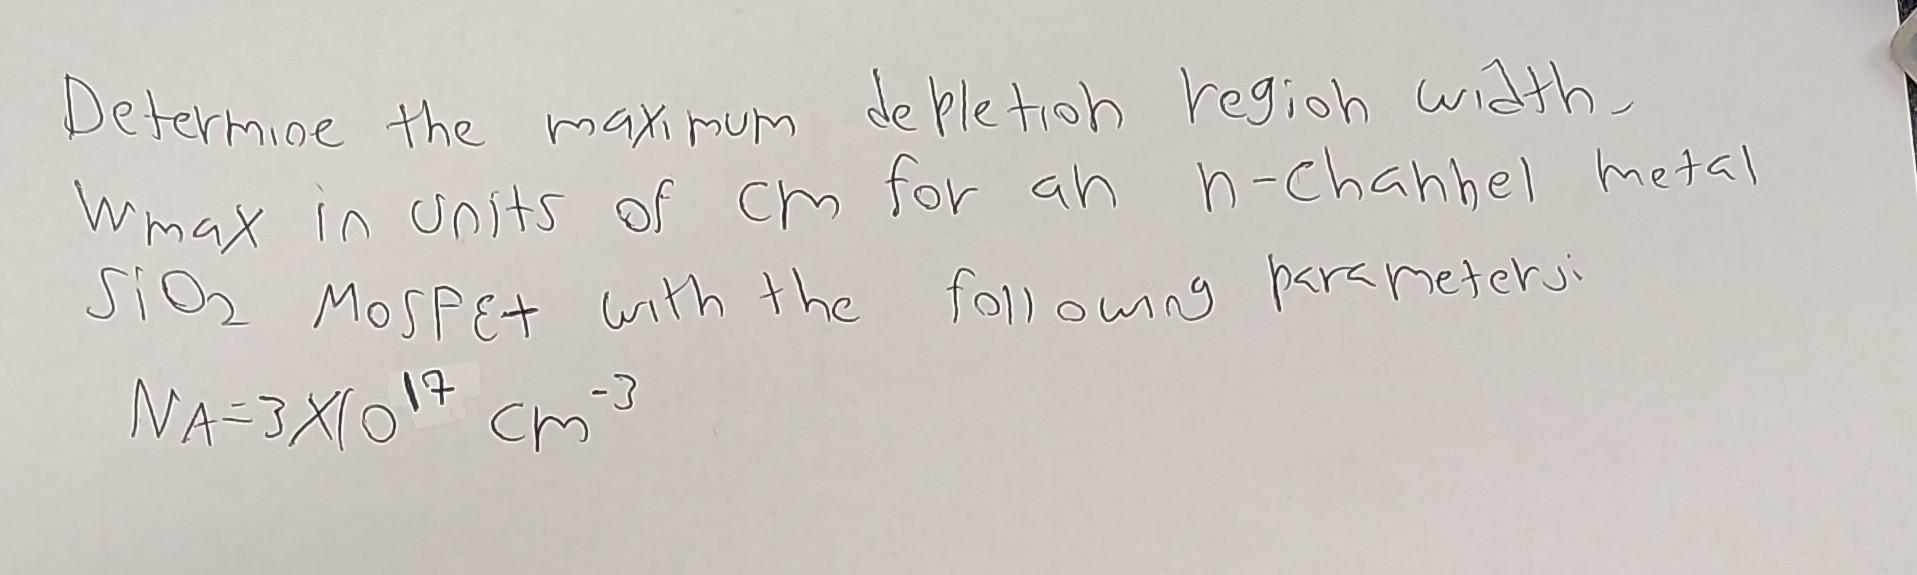 Determine the maximum depletion region width
Wmax in units of cm for an n-channel metal
SiO₂ MOSFEt with the following parameters:
NA=3X10¹⁷ cm⁻³